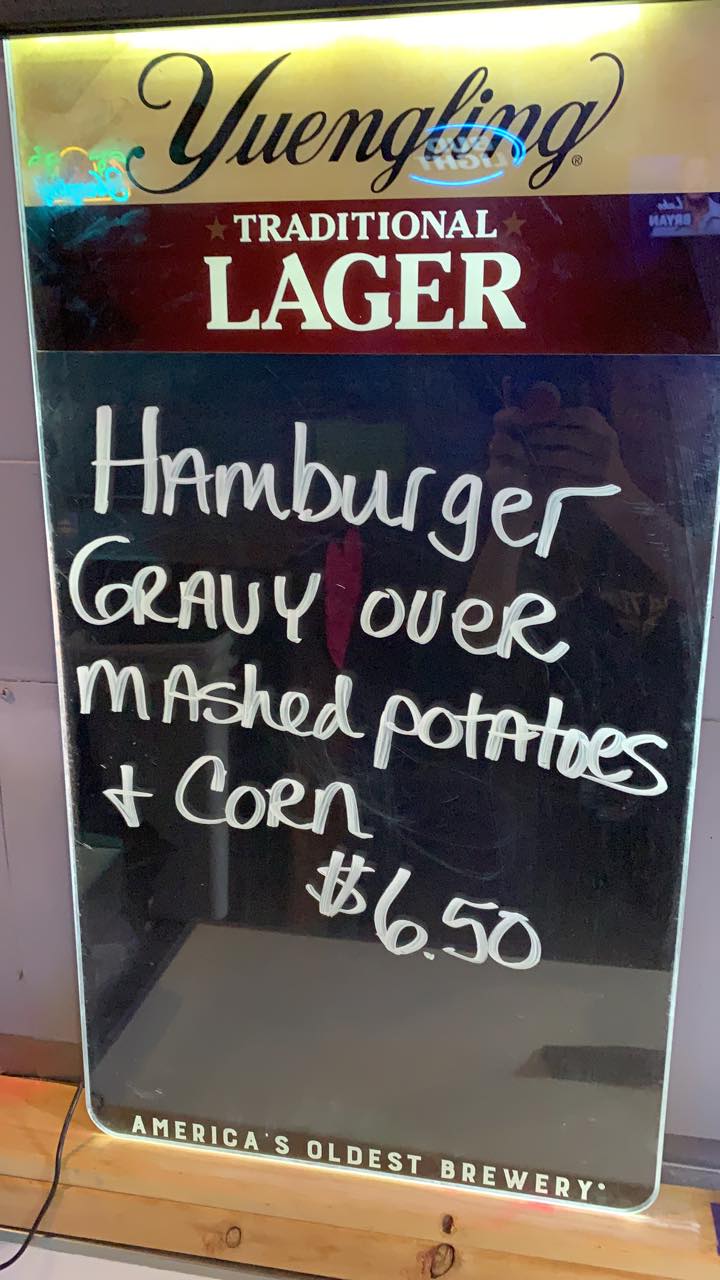 Yuengling®
TRADITIONAL
LAGER
HAmburger
GRAVY OVER
mAshed potAtoes
+ CORn
$6.50
AMERICA'S OLDEST BREWERY®
LIGHT
Luke
BRYAN